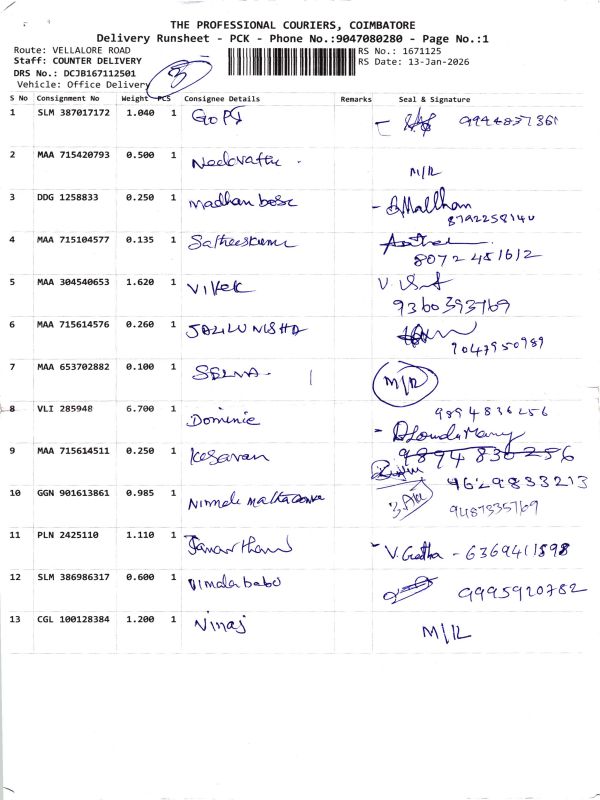 THE PROFESSIONAL COURIERS, COIMBATORE
Delivery Runsheet - PCK - Phone No.:9047080280 - Page No.:1
Route: VELLALORE ROAD
RS No.: 1671125
Staff: COUNTER DELIVERY
RS Date: 13-Jan-2026
DRS No.: DCJB167112501
Vehicle: Office Delivery
3
S No Consignment No Weight PCS Consignee Details Remarks Seal & Signature
1 SLM 387017172 1.040 1 GOPI
2 MAA 715420793 0.500 1 M/R
3 DDG 1258833 0.250 1 Madhan bose
8792258140
4 MAA 715104577 0.135 1
8072 451612
5 MAA 304540653 1.620 1 Vivek
9360393769
6 MAA 715614576 0.260 1 JALILUNISHA
9047950989
7 MAA 653702882 0.100 1 SELVA. M/R
8 VLI 285948 6.700 1 Dominic 9894836256
9894 836256
9 MAA 715614511 0.250 1 Kesavan
4629833213
10 GGN 901613861 0.985 1
9487335769
11 PLN 2425110 1.110 1 V. Geetha - 6369411598
12 SLM 386986317 0.600 1 Vimalababu 9995920782
13 CGL 100128384 1.200 1 M/R